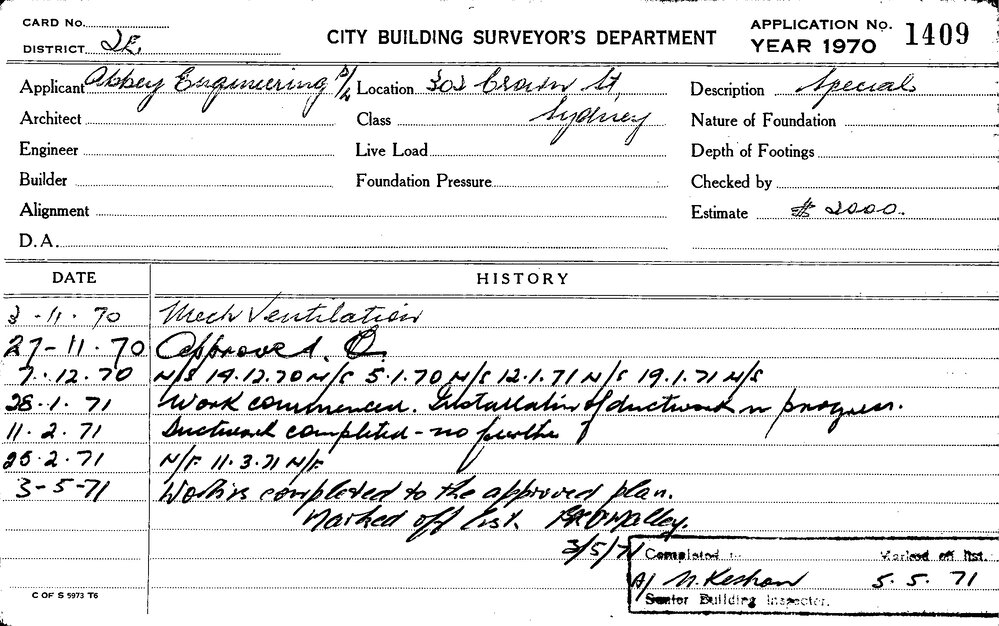 CARD No.
DISTRICT 2E.
CITY BUILDING SURVEYOR'S DEPARTMENT
APPLICATION No. 1409
YEAR 1970
Applicant Abbey Engineering P/L Location 302 Crown St, Description Special
Architect Class Sydney Nature of Foundation
Engineer Live Load Depth of Footings
Builder Foundation Pressure Checked by
Alignment Estimate $ 2000.
D.A.
DATE HISTORY
3-11.70 Mech Ventilation
27-11.70 Approved.
7.12.70 N/S 14.12.70 N/S 5.1.70 N/S 12.1.71 N/S 19.1.71 N/S
28.1.71 Work commenced. Installation of ductwork in progress.
11.2.71 Ductwork completed - no further
25.2.71 N/F 11.3.71 N/F
3-5-71 Work is completed to the approved plan.
Marked off list. O'Malley.
3/5/71
Completed Marked off list.
A/ N. Keshan 5.5.71
Senior Building Inspector.
C OF S 5973 T6